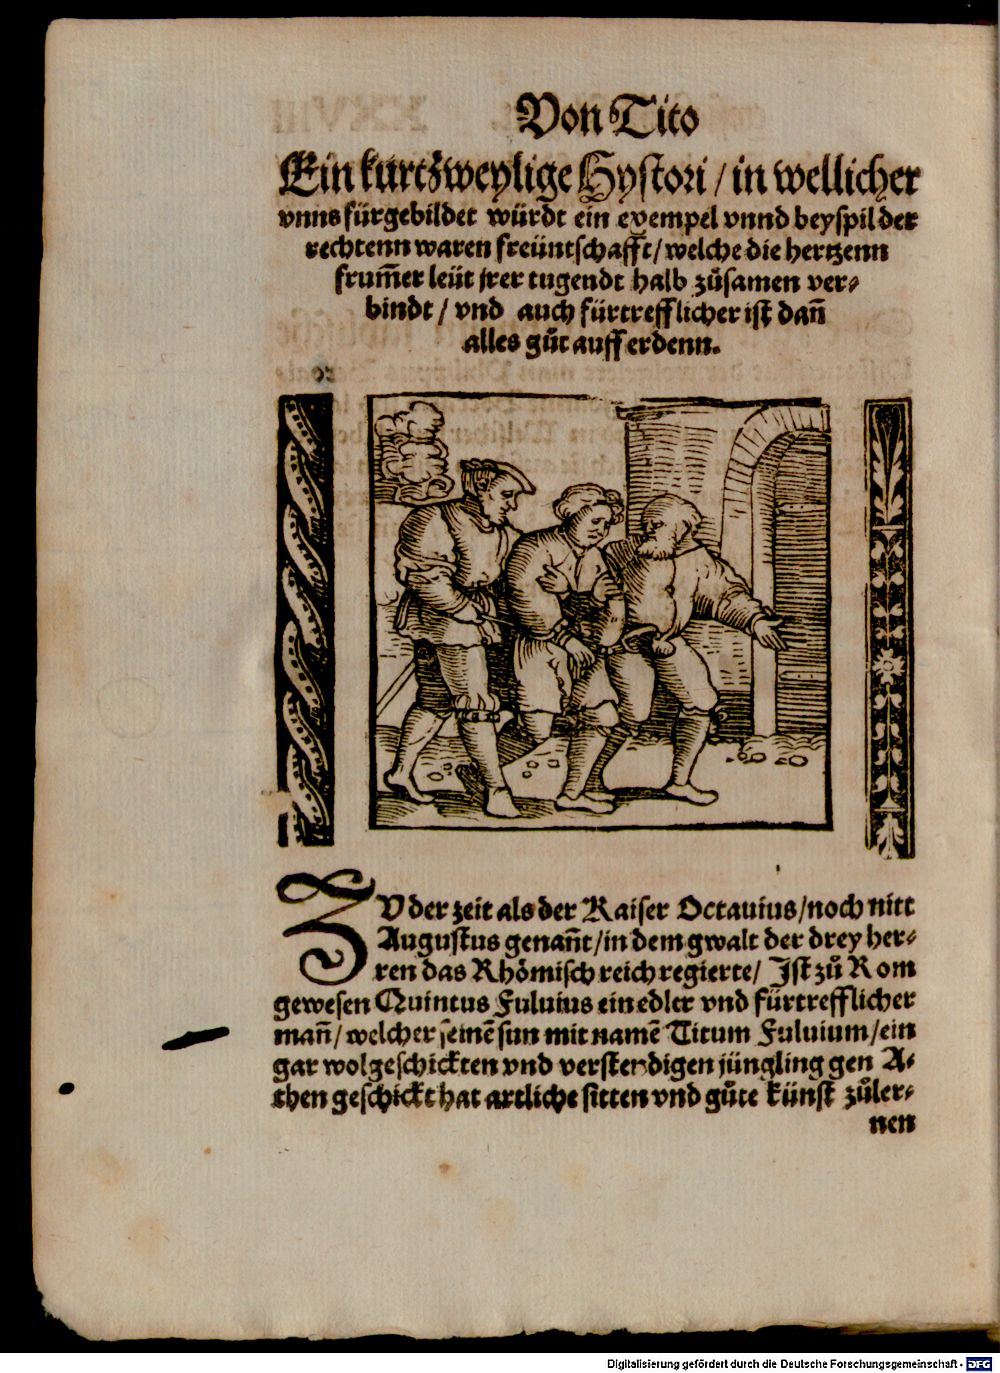 Von Tito
Ein kurtzweylige Hystori / in wellicher
vnns fürgebildet würdt ein exempel vnnd beyspil der
rechtenn waren freüntschafft / welche die hertzenn
frum̃er leüt jrer tugendt halb zůsamen ver⸗
bindt / vnd auch fürtrefflicher ist dañ
alles gůt auff erdenn.
ZV der zeit als der Kaiser Octauius / noch nitt
Augustus genañt / in dem gwalt der drey her⸗
ren das Rhömisch reich regierte / Ist zů Rom
gewesen Quintus Fuluius ein edler vnd fürtrefflicher
mañ / welcher seinẽ sun mit namẽ Titum Fuluium / ein
gar wolgeschickten vnd verstendigen jüngling gen A⸗
then geschickt hat artliche sitten vnd gůte künst zůler⸗
nen
Digitalisierung gefördert durch die Deutsche Forschungsgemeinschaft - DFG